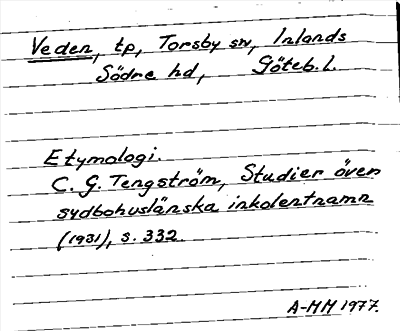 Veden, tp, Torsby sn, Inlands
Södre hd, Göteb. l.
Etymologi.
C. G. Tengström, Studier över
sydbohuslänska inkolentnamn
(1931), s. 332.
A-MM 1977.